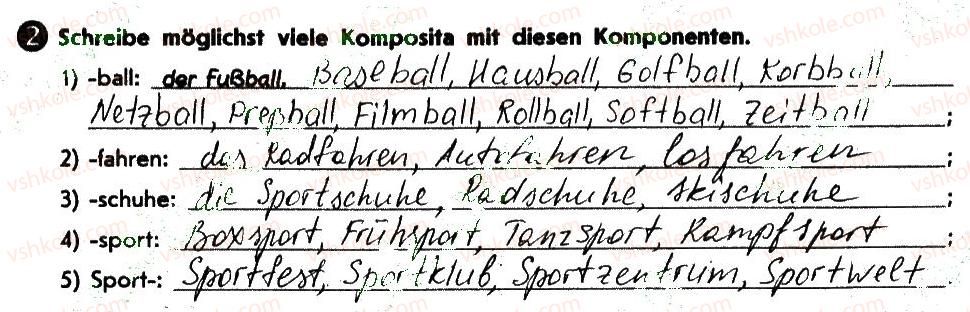 2 Schreibe möglichst viele Komposita mit diesen Komponenten.
1) -ball: der Fußball, Baseball, Hausball, Golfball, Korbball,
Netzball, Preßball, Filmball, Rollball, Softball, Zeitball ;
2) -fahren: das Radfahren, Autofahren, losfahren ;
3) -schuhe: die Sportschuhe, Radschuhe, Skischuhe ;
4) -sport: Boxsport, Frühsport, Tanzsport, Kampfsport ;
5) Sport-: Sportfest, Sportklub, Sportzentrum, Sportwelt .